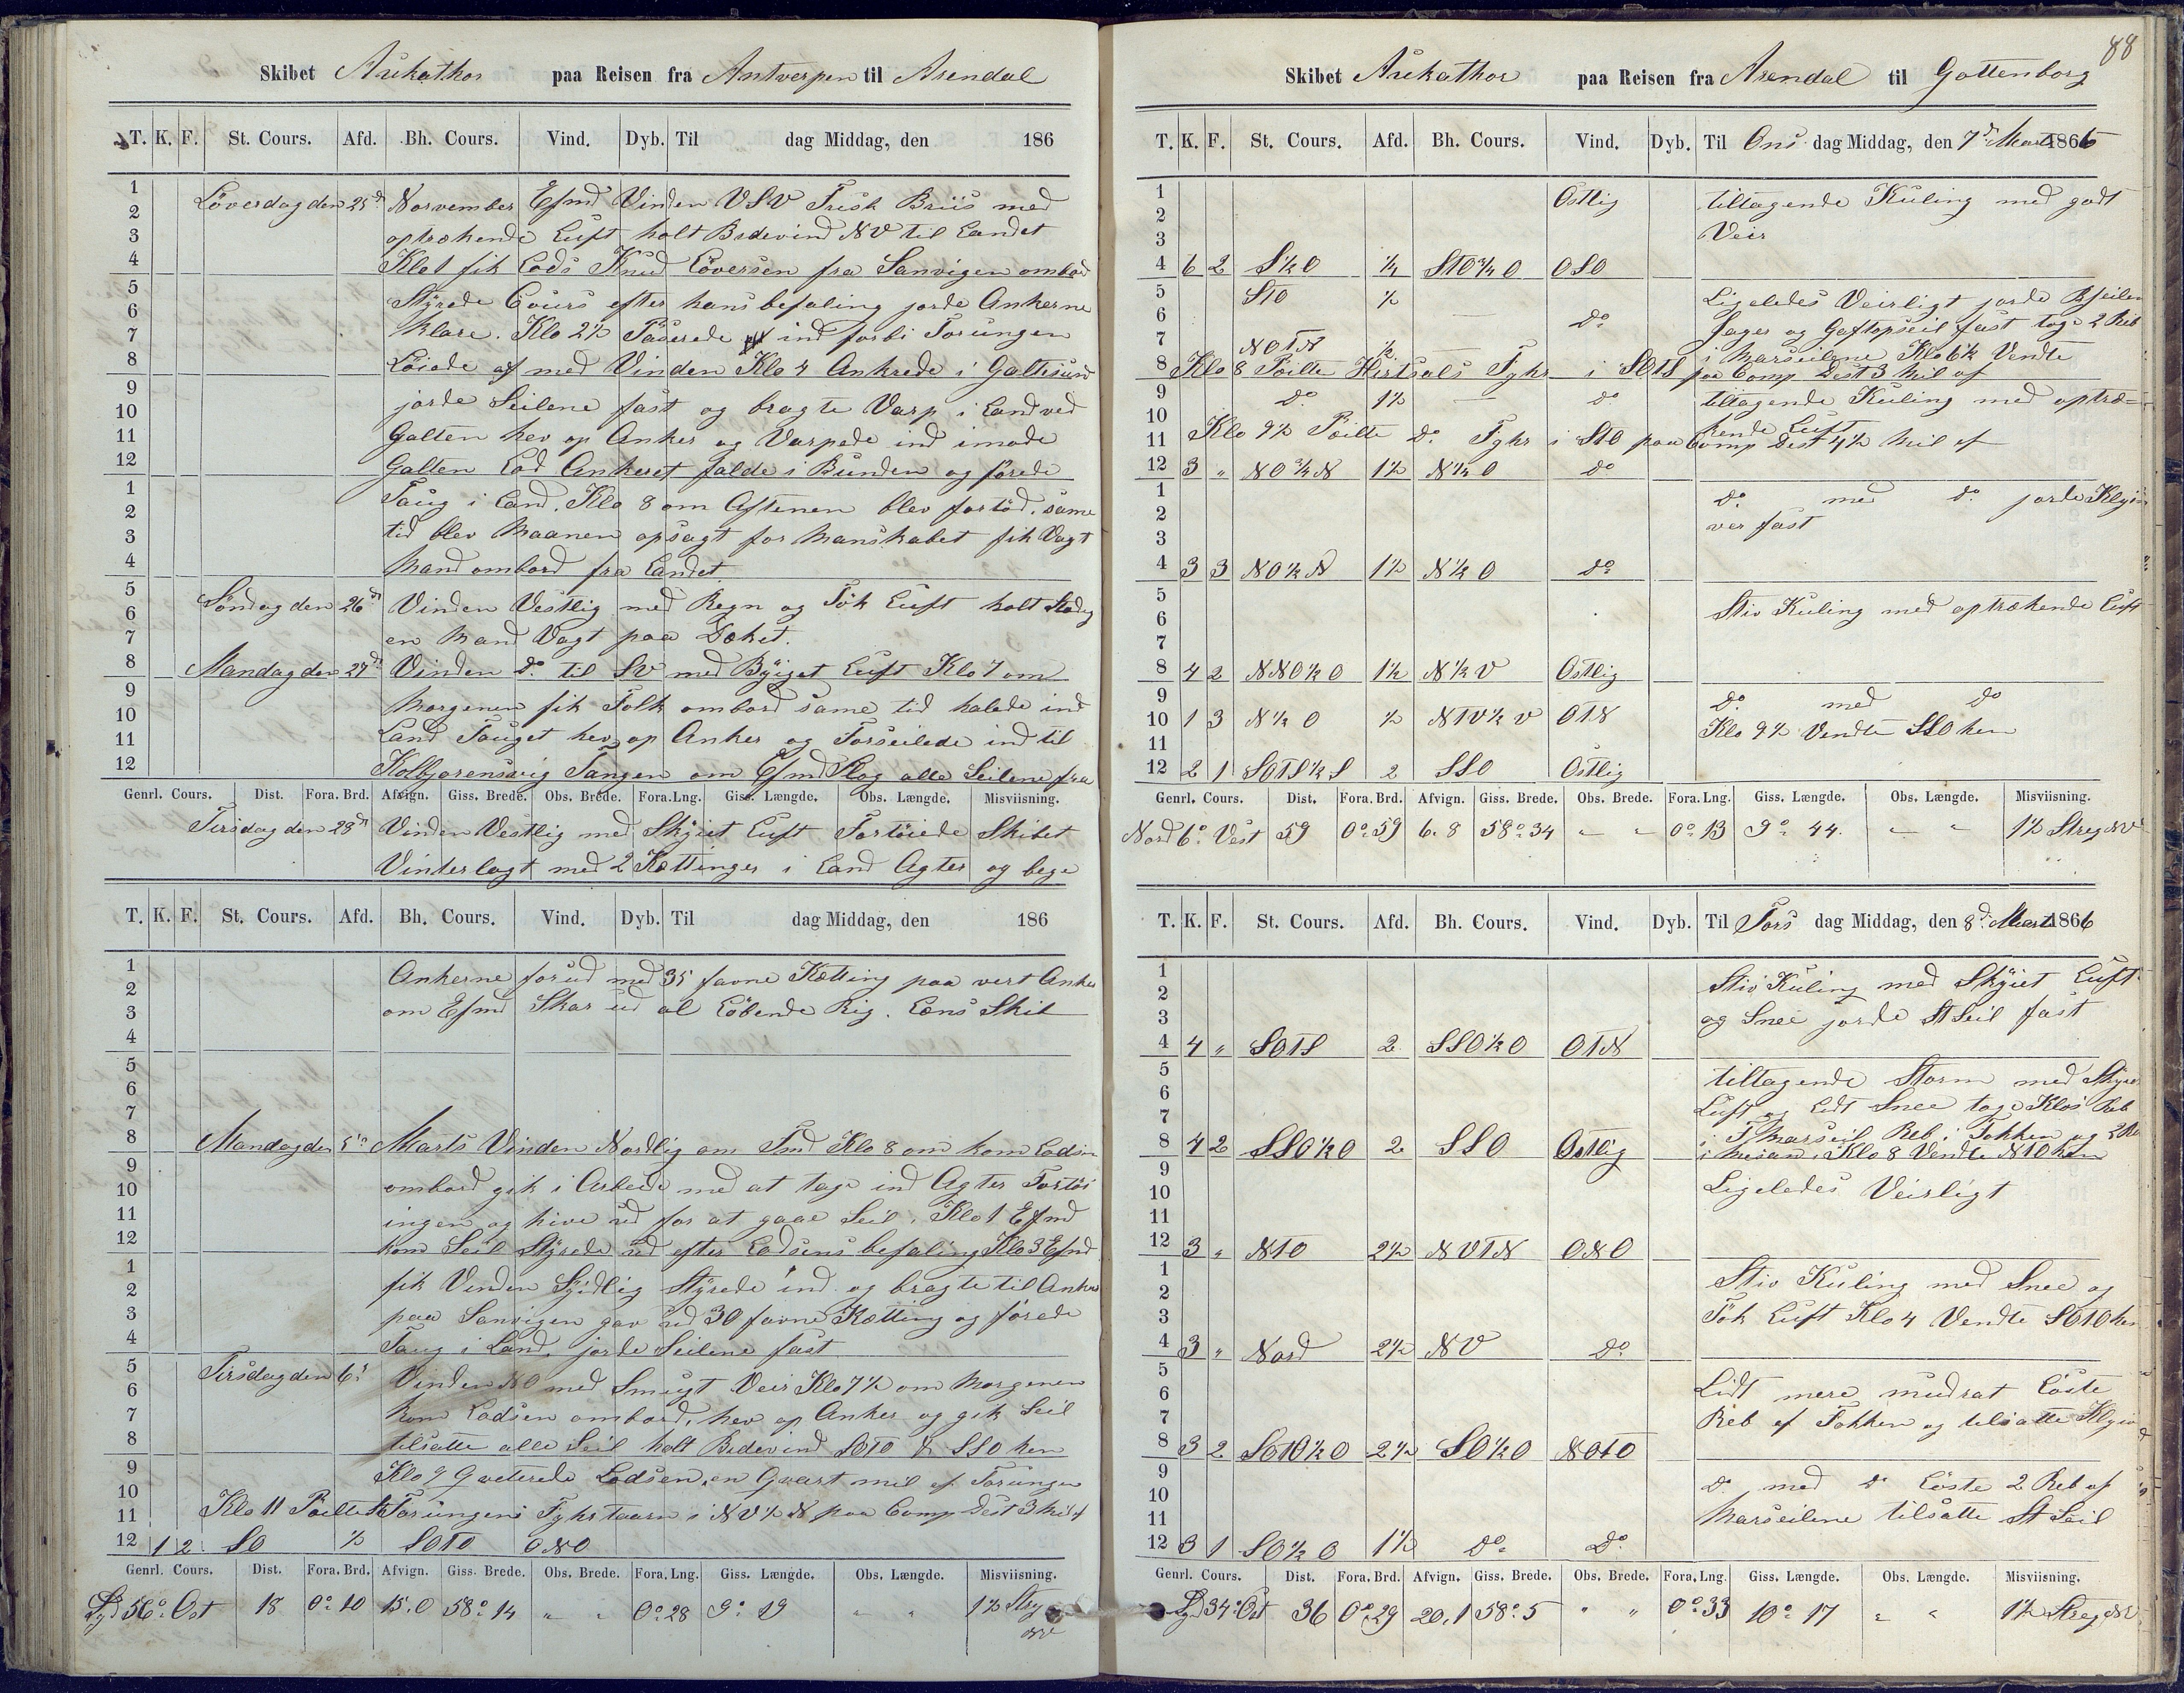 Skibet Aukathor paa Reisen fra Antverpen til Arendal
T. K. F. St. Cours. Afd. Bh. Cours. Vind. Dyb. Til dag Middag, den 186
1 Löverdag den 25d November Efmd Vinden VSV Frisk Briis med
2 optrækende Luft holt Bidevind NV til Landet
3
4 Klo 1 fik Lods Knud Löversen fra Sanvigen ombord
5 Styrede Cours efter hans befaling jorde Ankerne
6
7 klare. Klo 2½ Paserede ind forbi Torungen
8 Löiede af med Vinden Klo 4 Ankrede i Galtesund
9 jorde Seilene fast og bragte Varp i Land ved
10
11 Galten hev op Anker og Varpede ind imode
12 Galten Lod Ankeret falde i Bunden og förede
1 Taug i Land. Klo 8 om Aftenen blev fortöd. same
2
3 tid blev Maanen opsagt for Manskabet fik Vagt
4 Mand ombord fra Landet
5 Söndag den 26d Vinden Vestlig med Regn og Tök Luft holt Stadig
6
7 en Mand Vagt paa Dæket.
8 Mandag den 27d Vinden do til SV med Byiget Luft Klo 7 om
9 Morgenen fik Folk ombord same tid halede ind
10
11 Land Tauget hev op Anker og Forseilede ind til
12 Kolbjorensvig Tangen om Efmd Slog alle Seilene fra
Genrl. Cours. Dist. Fora. Brd. Afvign. Giss. Brede. Obs. Brede. Fora.Lng. Giss. Længde. Obs. Længde. Misviisning.
Tirsdag den 28d Vinden Vestlig med Skyiet Luft Fortöiede Skibet
Vinterlagt med 2 Kettinger i Land Agter og bege
T. K. F. St. Cours. Afd. Bh. Cours. Vind. Dyb. Til dag Middag, den 186
1 Ankerne forud med 35 favne Kætting paa vert Anker
2
3 om Efmd Skar ud al Löbende Rig. Lens Skib
4
5
6
7
8 Mandag den 5te Marts Vinden Nordlig om Fmd Klo 8 om kom Lodsen
9 ombord gik i Arbeide med at tage ind Agter Fortöi
10
11 ingen og hive ud for at gaae Seil. Klo 1 Efmd
12 kom Seil Styrede ud efter Lodsens befaling Klo 3 Efmd
1 fik Vinden Sydlig Styrede ind og bragte til Ankers
2
3 paa Sanvigen gav ud 30 favne Kætting og förede
4 Taug i Land. jorde Seilene fast
5 Tirsdag den 6te Vinden NO med Smugt Veir Klo 7½ om Morgenen
6
7 kom Lodsen ombord, hev op Anker og gik Seil
8 tilsatte alle Seil holt Bidevind SOTO & SSO hen
9 Klo 9 Qveterede Lodsen, en Qvart mil af Torungen
10
11 Klo 11 Poilte Torungens Fyhrtaarn i NV½N paa Comp Dest 3 Mil af
12 1 2 SO ½ SOTO ONO
Genrl. Cours. Dist. Fora. Brd. Afvign. Giss. Brede. Obs. Brede. Fora.Lng. Giss. Længde. Obs. Længde. Misviisning.
Syd 56° Ost 18 0° 10 15.0 58° 14 " " 0° 28 9° 19 " " 1½ Streg NV
88
Skibet Aukathor paa Reisen fra Arendal til Gottenborg
T. K. F. St. Cours. Afd. Bh. Cours. Vind. Dyb. Til Ons dag Middag, den 7d Marts 1866
1 Ostlig tiltagende Kuling med godt
2
3 Veir
4 6 2 S½O ¼ STO¾O OSO
5 STO ½ Ligeledes Veirligt jorde Bseilen
6 do Jager og Gaftopseil fast toge 2 Reb
7 NOTN ½ i Marseilene Klo 6½ Vendte
8 Klo 8 Poilte Hirtsals Fyhr i SOTS paa Comp Dest 3 Mil af
9 do 1½ do tiltagende Kuling med optræ-
10 kende Luft
11 Klo 9½ Poilte do Fyhr i STO paa Comp Dest 4½ Mil af
12 3 " NO¾N 1½ N¼O do
1 do med do jorde Klyi
2 ver fast
3
4 3 3 NO½N 1½ N½O do
5 Stiv Kuling med optrækende Luft
6
7
8 4 2 NNO½O 1½ N½V Ostlig
9 do med do
10 1 3 N½O ½ NTV½V OTN Klo 9½ Vendte SSO hen
11
12 2 1 SOTS½S 2 SSO Ostlig
Genrl. Cours. Dist. Fora. Brd. Afvign. Giss. Brede. Obs. Brede. Fora.Lng. Giss. Længde. Obs. Længde. Misviisning.
Nord 6° Vest 59 0° 59 6.8 58° 34 " " 0° 13 9° 44. " " 1½ Streg NV
T. K. F. St. Cours. Afd. Bh. Cours. Vind. Dyb. Til Tors dag Middag, den 8d Marts 1866
1 Stiv Kuling med Skyiet Luft
2
3 og Snee jorde St Seil fast
4 4 " SOTS 2 SSO½O OTN
5 tiltagende Storm med Skyet
6
7 Luft og Lidt Snee toge Klos Reb
8 4 2 SSO½O 2 SSO Ostlig i F Marseil Reb i Fokken og 2 Reb
9 i Mesan. Klo 8 Vendte NTO hen
10 Ligeledes Veirligt
11
12 3 " NTO 2½ NVTN ONO
1 Stiv Kuling med Snee og
2
3 Tök Luft Klo 4 Vendte SOTO hen
4 3 " Nord 2½ NV do
5 Lidt mere mudrat Löste
6
7 Reb af Fokken og tilsatte Klyiv
8 3 2 SOTO½O 2½ SO½O NOTO
9 do med do Löste 2 Reb af
10
11 Marseilene tilsatte St Seil
12 3 1 SO½O 1½ do do
Genrl. Cours. Dist. Fora. Brd. Afvign. Giss. Brede. Obs. Brede. Fora.Lng. Giss. Længde. Obs. Længde. Misviisning.
Syd 34° Ost 36 0° 29 20.1 58° 5 " " 0° 33 10° 17 " " 1½ Streg NV